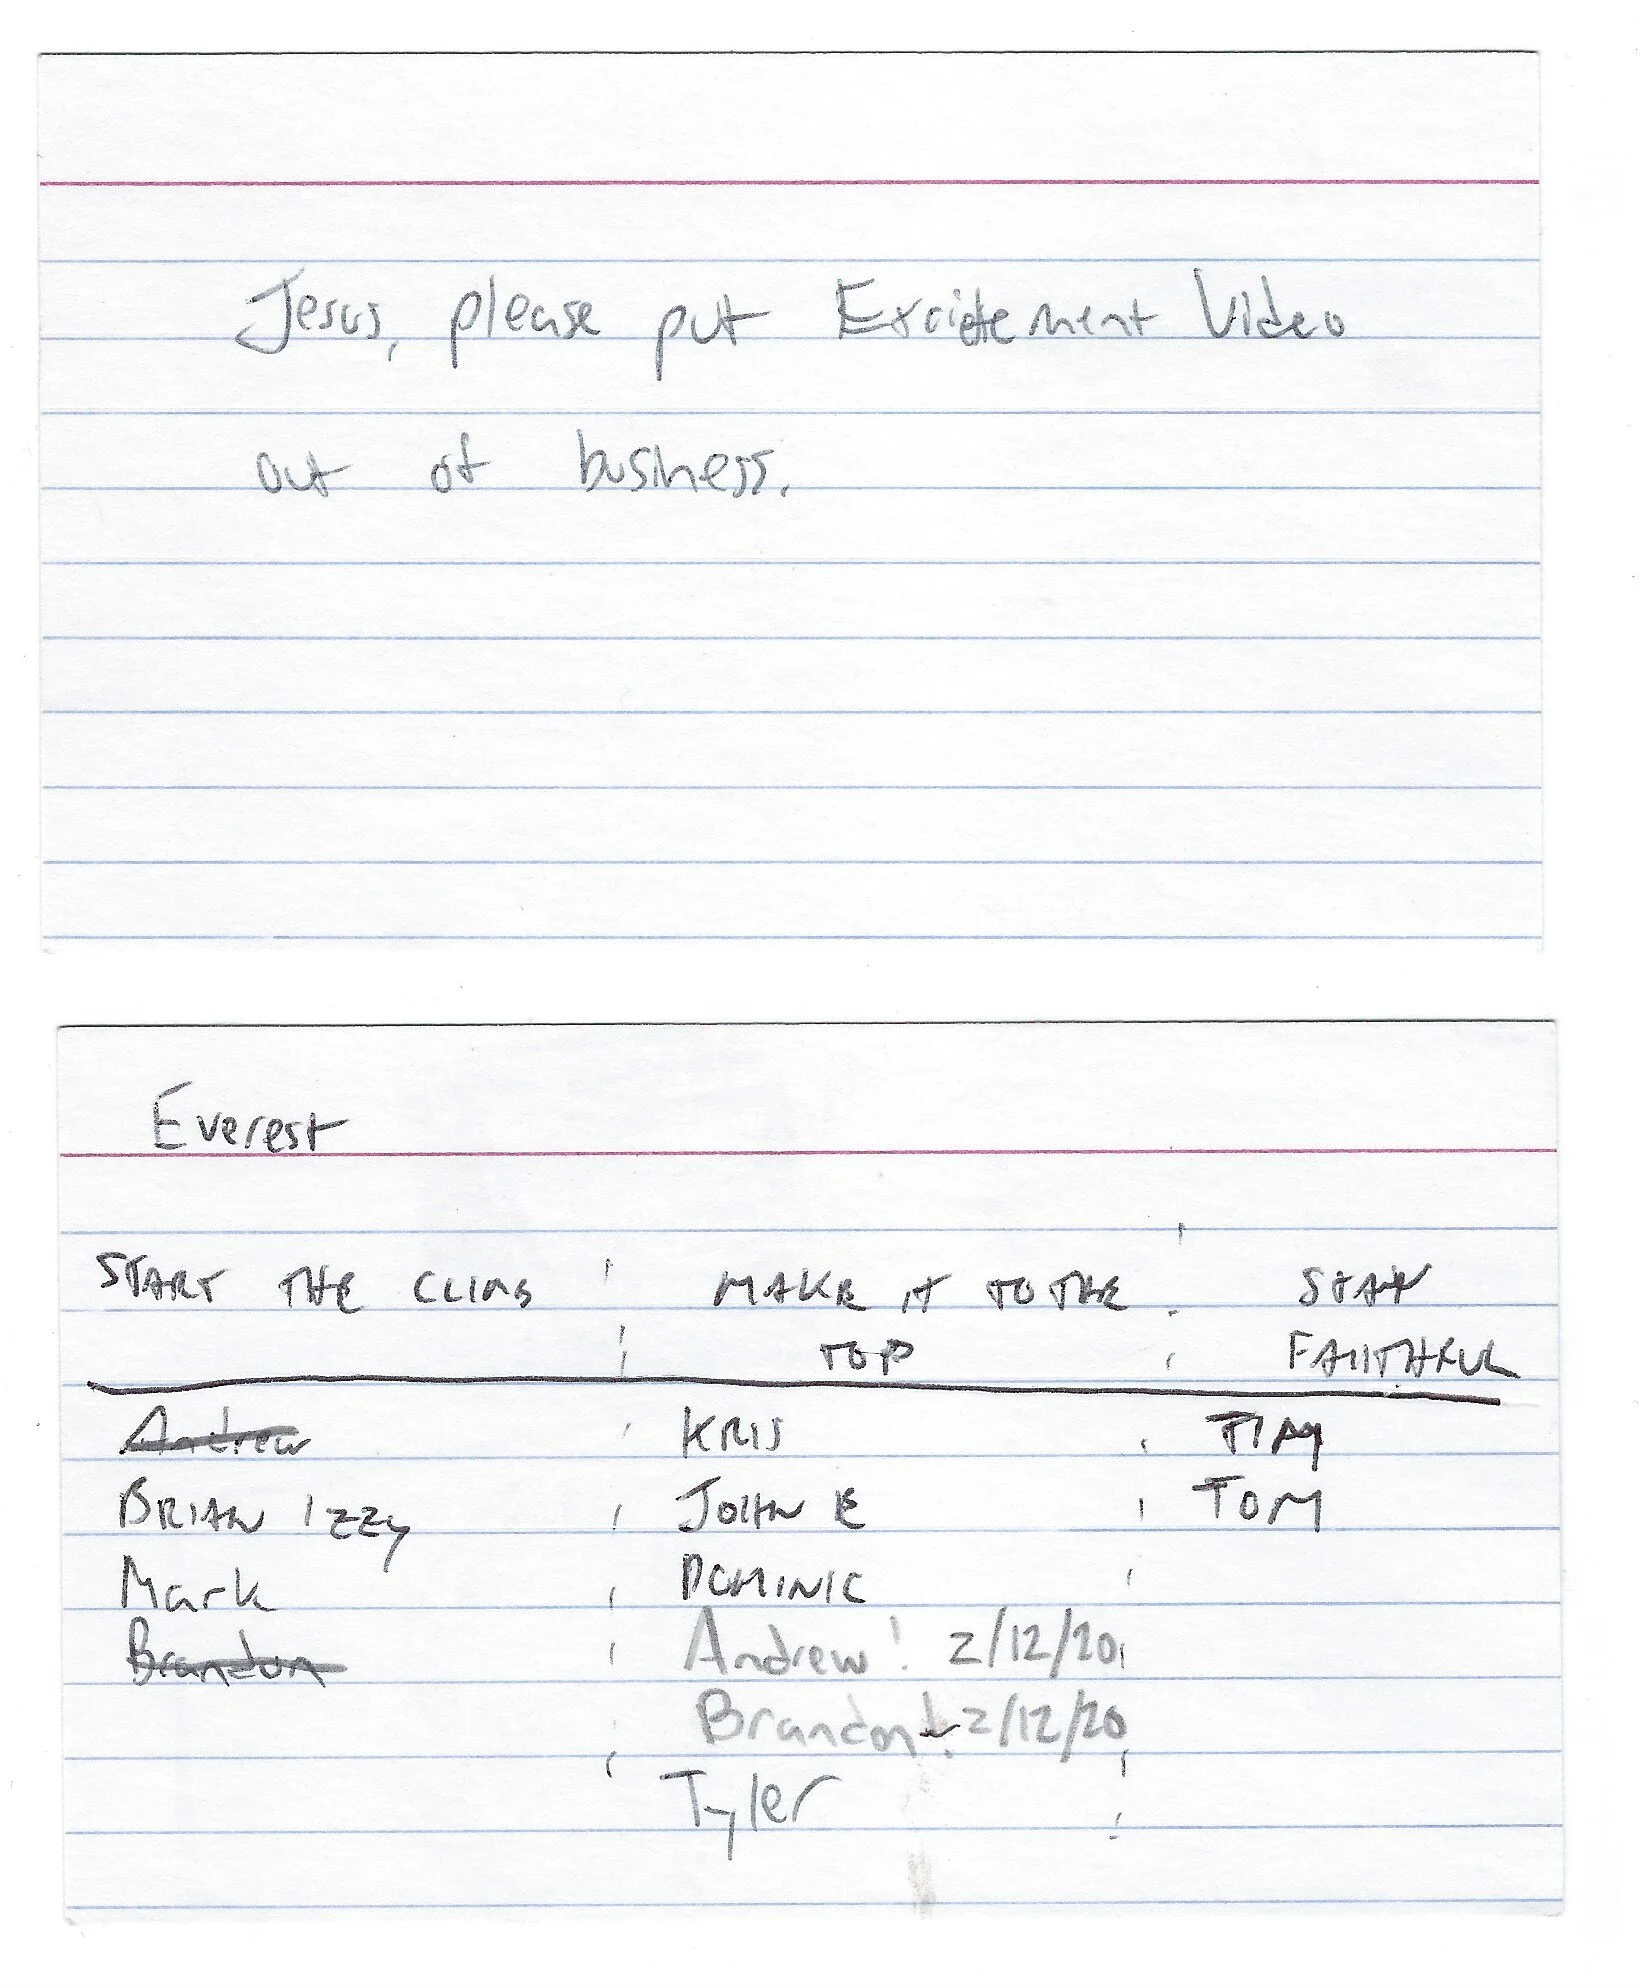 Jesus, please put Excitement Video
out of business.
Everest
START THE CLIMB MAKE IT TO THE STAY
TOP FAITHFUL
Andrew KRIS TIM
BRIAN IZZY JOHN E TOM
Mark DOMINIC
Brandon Andrew! 2/12/20
Brandon! 2/12/20
Tyler